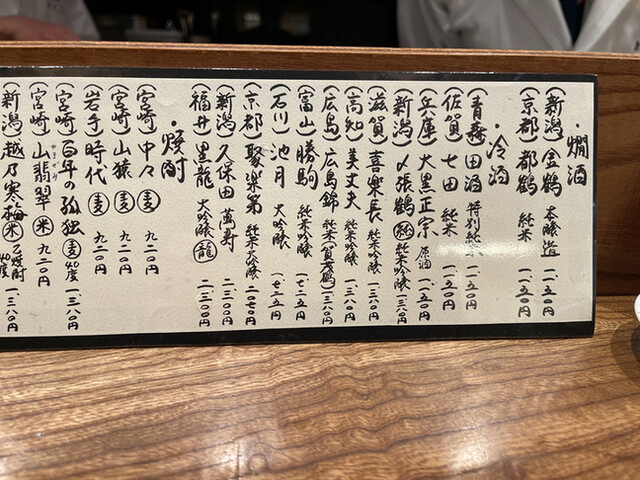 ・燗酒
(新潟)金鶴 本醸造 一.一五〇円
(京都)都鶴 純米 一.一五〇円
・冷酒
(青森)田酒 特別純米 一.一五〇円
(佐賀)七田 純米 一.一五〇円
(兵庫)大黒正宗 原酒 一.一五〇円
(新潟)〆張鶴 純 純米吟醸 一.三八〇円
(滋賀)喜楽長 純米吟醸 一.三八〇円
(高知)美丈夫 純米吟醸 一.三八〇円
(広島)広島錦 純米(賀茂鶴) 一.三八〇円
(富山)勝駒 純米吟醸 一.七二五円
(石川)池月 大吟醸 一.七二五円
(京都)聚楽第 純米大吟醸 二.〇七〇円
(新潟)久保田 萬寿 二.三〇〇円
(福井)黒龍 大吟醸 龍 二.三〇〇円
・焼酎
(宮崎)中々 麦 九二〇円
(宮崎)山猿 麦 九二〇円
(岩手)時代 麦 九二〇円
(宮崎)百年の孤独 麦 40度 一.三八〇円
(宮崎)山翡翠 やませみ 米 九二〇円
(新潟)越乃寒梅 米 乙焼酎 40度 一.三八〇円